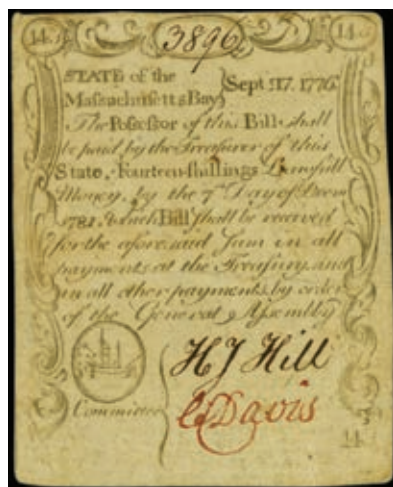 14s 3896 14s
STATE of the
Massachusetts Bay } Sept. 17. 1776.
The Possessor of this Bill shall
be paid, by the Treasurer of this
State, Fourteen shillings Lawfull
Money, by the 7th Day of Decem
1781. which Bill shall be received
for the aforesaid Sum in all
payments at the Treasury, and
in all other payments, by order
of the General Assembly
H J Hill
Committee
Davis
14